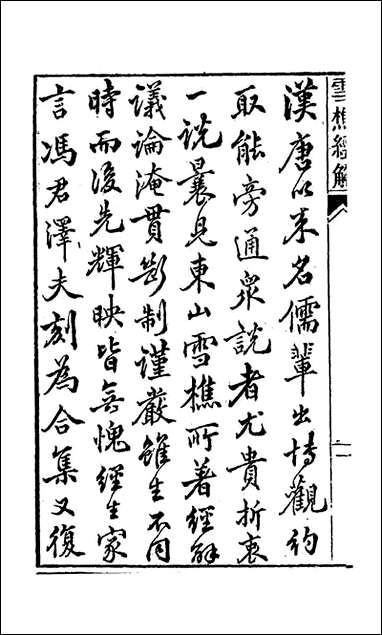 雪樵經解
漢唐以來名儒輩出博觀約
取能旁通衆說者尤貴折衷
一說曩見東山雪樵所著經解
議論淹貫斷制謹嚴雖生不同
時而後先輝映皆無愧經生家
言馮君澤夫刻為合集又復